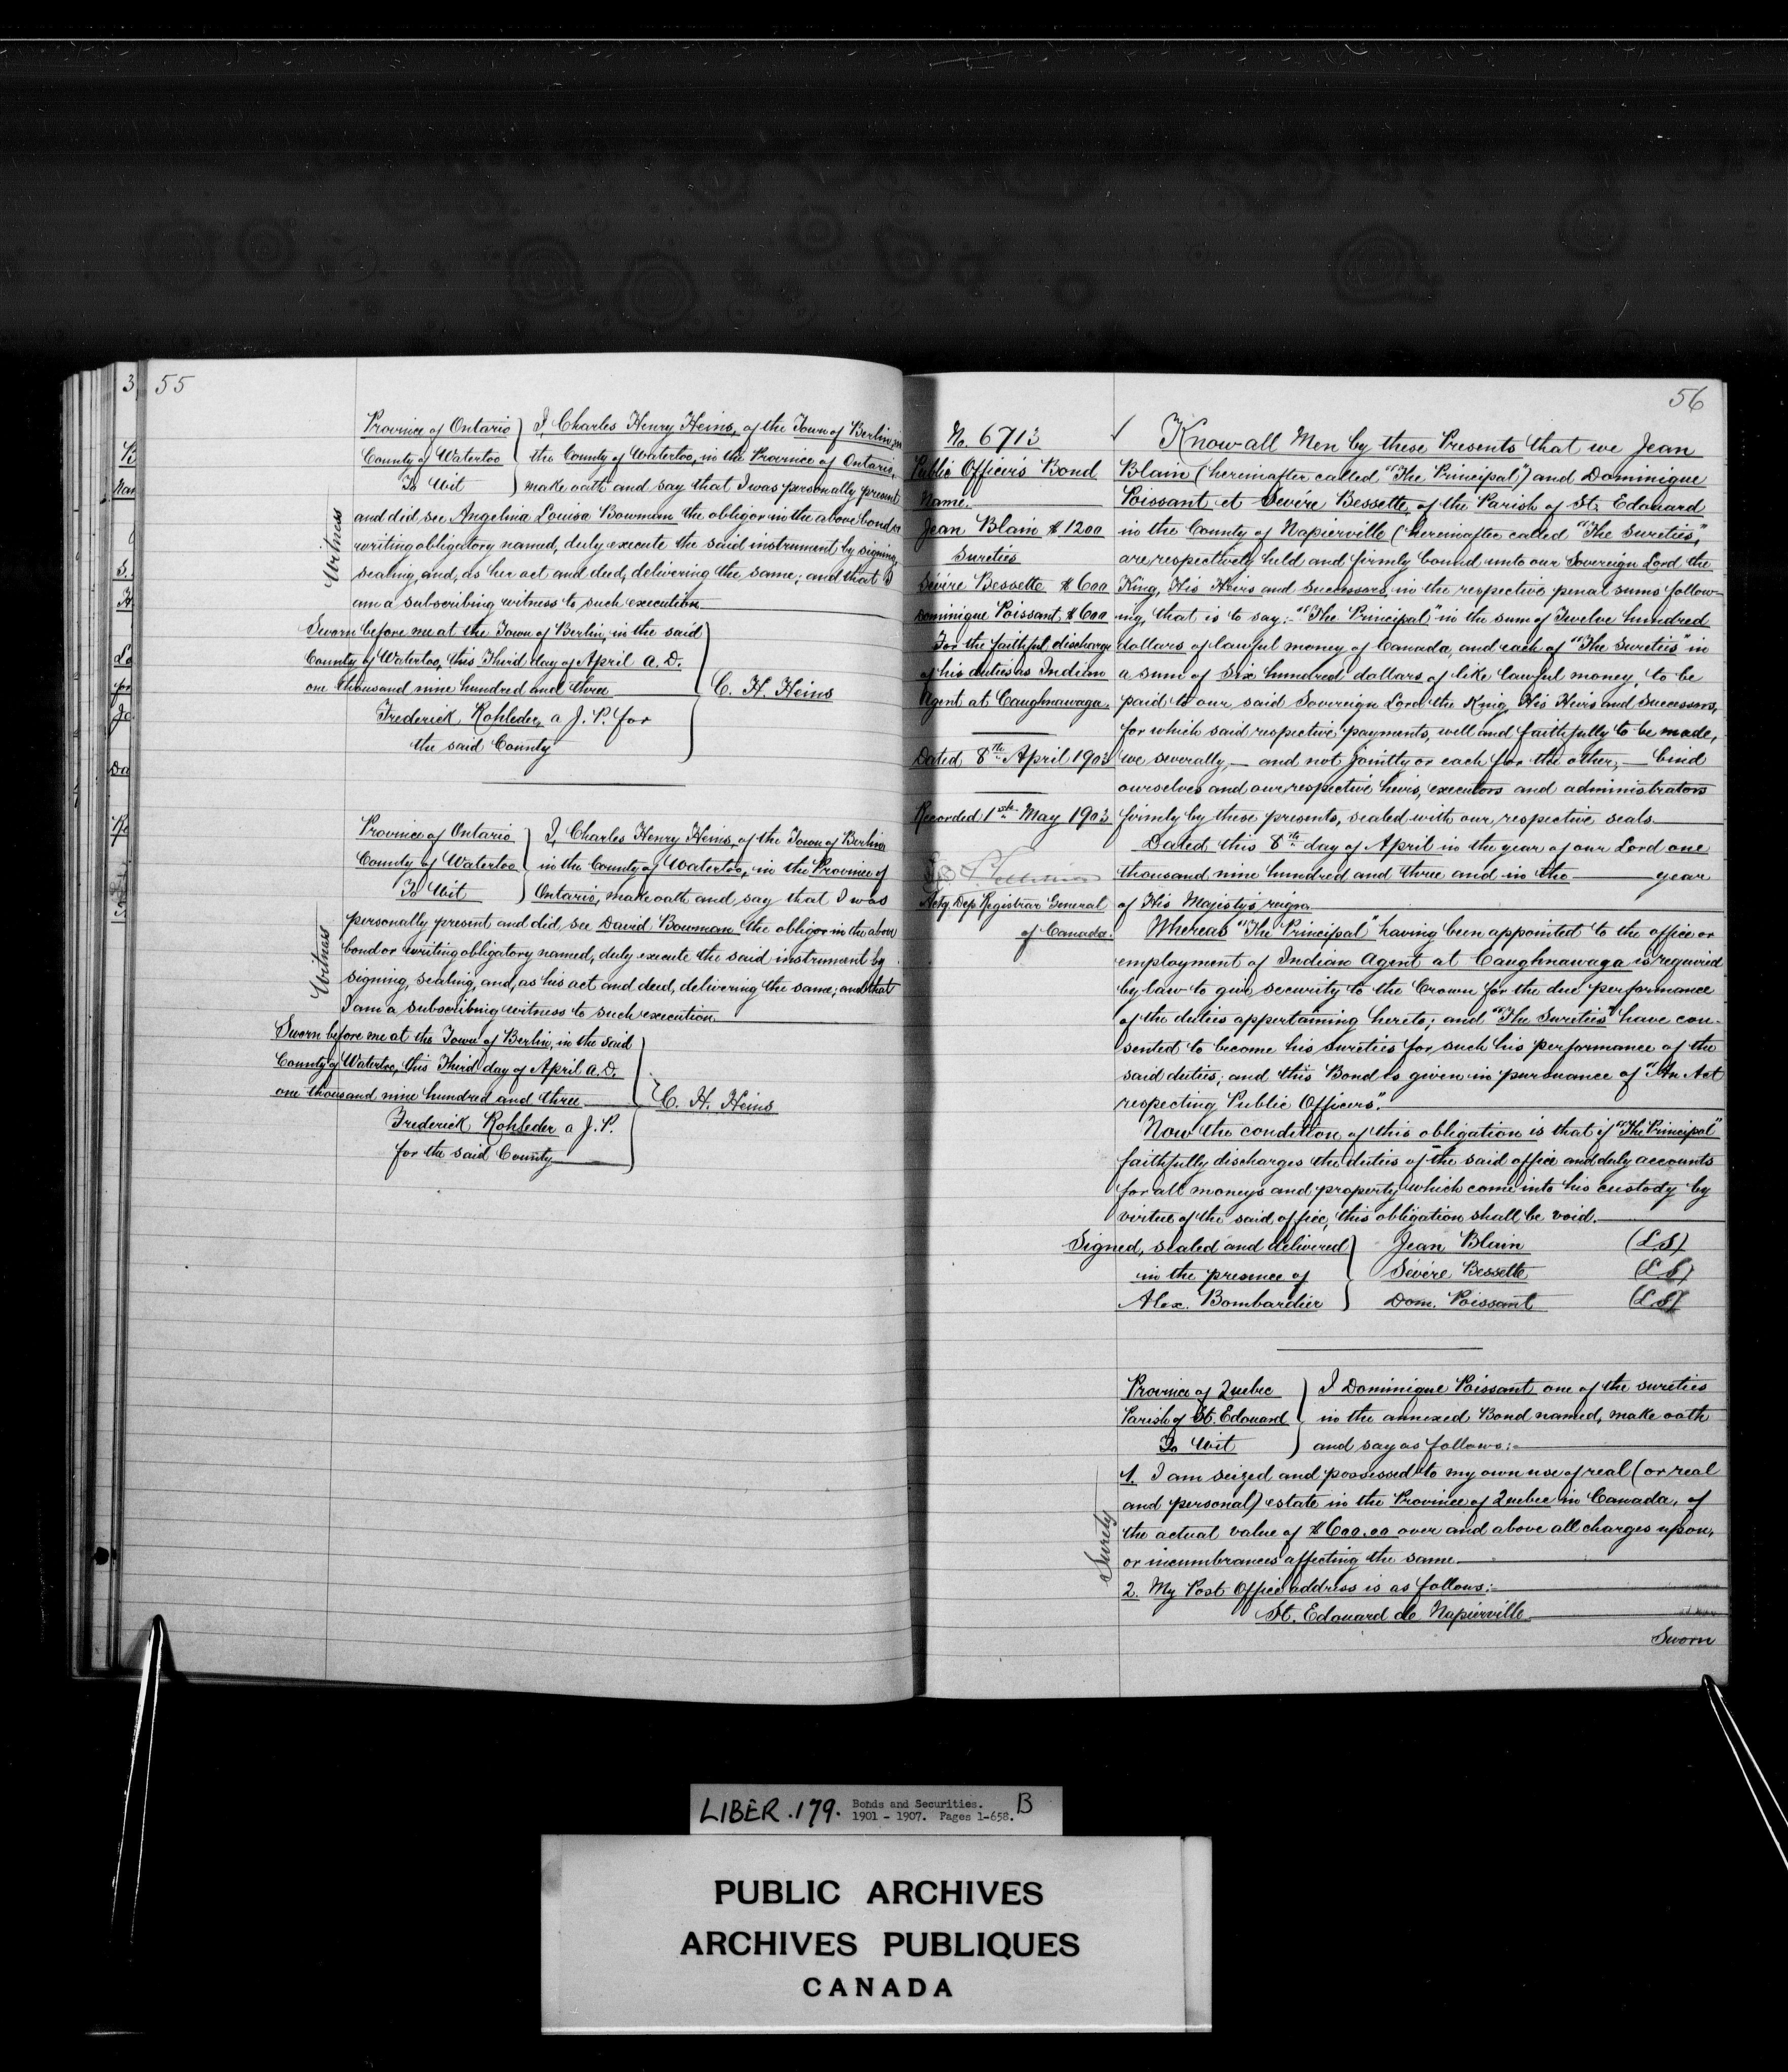 55
Province of Ontario } I, Charles Henry Heins, of the Town of Berlin, in
County of Waterloo } the County of Waterloo, in the Province of Ontario,
To Wit } make oath and say that I was personally present
and did see Angelina Louisa Bowman the obligor in the above bond or
writing obligatory named, duly execute the said instrument by signing,
sealing, and, as her act and deed, delivering the same; and that I
am a subscribing witness to such execution
Witness
Sworn before me at the Town of Berlin, in the said
County of Waterloo, this Third day of April A.D.
one thousand nine hundred and three } C. H. Heins
Frederick Rohleder, a J. P. for
the said County
Province of Ontario } I, Charles Henry Heins, of the Town of Berlin
County of Waterloo } in the County of Waterloo, in the Province of
To Wit } Ontario, make oath and say that I was
personally present and did see David Bowman the obligor in the above
bond or writing obligatory named, duly execute the said instrument by
signing, sealing, and, as his act and deed, delivering the same; and that
I am a subscribing witness to such execution
Witness
Sworn before me at the Town of Berlin, in the said
County of Waterloo, this Third day of April A.D.
one thousand nine hundred and three } C. H. Heins
Frederick Rohleder a J. P.
for the said County
56
No. 6713
Public Officer's Bond
Name.
Jean Blain $1200
Sureties
Sévère Bessette $600
Dominique Poissant $600
For the faithful discharge
of his duties as Indian
Agent at Caughnawaga.
Dated 8th April 1903
Recorded 1st May 1903
Actg Dep Registrar General
of Canada.
Know all Men by these Presents that we Jean
Blain (hereinafter called "The Principal") and Dominique
Poissant et Sevère Bessette, of the Parish of St. Edouard
in the County of Napierville (hereinafter called "The Sureties,"
are respectively held and firmly bound unto our Sovereign Lord the
King, His Heirs and Successors, in the respective penal sums follow-
ing, that is to say:- "The Principal" in the sum of Twelve hundred
dollars of lawful money of Canada, and each of "The Sureties" in
a sum of Six hundred dollars of like lawful money, to be
paid to our said Sovereign Lord the King, His Heirs and Successors,
for which said respective payments, well and faithfully to be made,
we severally, — and not jointly or each for the other, — bind
ourselves and our respective heirs, executors and administrators
firmly by these presents, sealed with our respective seals.
Dated this 8th day of April in the year of our Lord one
thousand nine hundred and three and in the year
of His Majesty's reign
Whereas "The Principal" having been appointed to the office or
employment of Indian Agent at Caughnawaga is required
by law to give security to the Crown for the due performance
of the duties appertaining hereto; and "The Sureties" have con-
sented to become his sureties for such his performance of the
said duties; and this Bond is given in pursuance of "An Act
respecting Public Officers".
Now the condition of this obligation is that if "The Principal"
faithfully discharges the duties of the said office and duly accounts
for all moneys and property which come into his custody by
virtue of the said office, this obligation shall be void.
Signed, sealed and delivered } Jean Blain (L.S)
in the presence of } Sévère Bessette (L.S)
Alex. Bombardier } Dom. Poissant (L.S)
Province of Quebec } I Dominique Poissant one of the sureties
Parish of St. Edouard } in the annexed Bond named, make oath
To Wit } and say as follows:-
1. I am seized and possessed to my own use of real (or real
and personal) estate in the Province of Quebec in Canada, of
the actual value of $600.00 over and above all charges upon,
or incumbrances affecting the same.
Surety
2. My Post Office address is as follows:-
St. Edouard de Napierville
Sworn
LIBER .179. Bonds and Securities. B
1901 - 1907. Pages 1-658.
PUBLIC ARCHIVES
ARCHIVES PUBLIQUES
CANADA